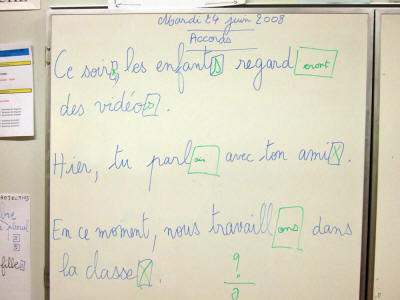 Mardi 24 juin 2008
Accords
Ce soir, les enfants regarderont
des vidéos.
Hier, tu parlais avec ton ami X.
En ce moment, nous travaillons dans
la classe X.
?
fille